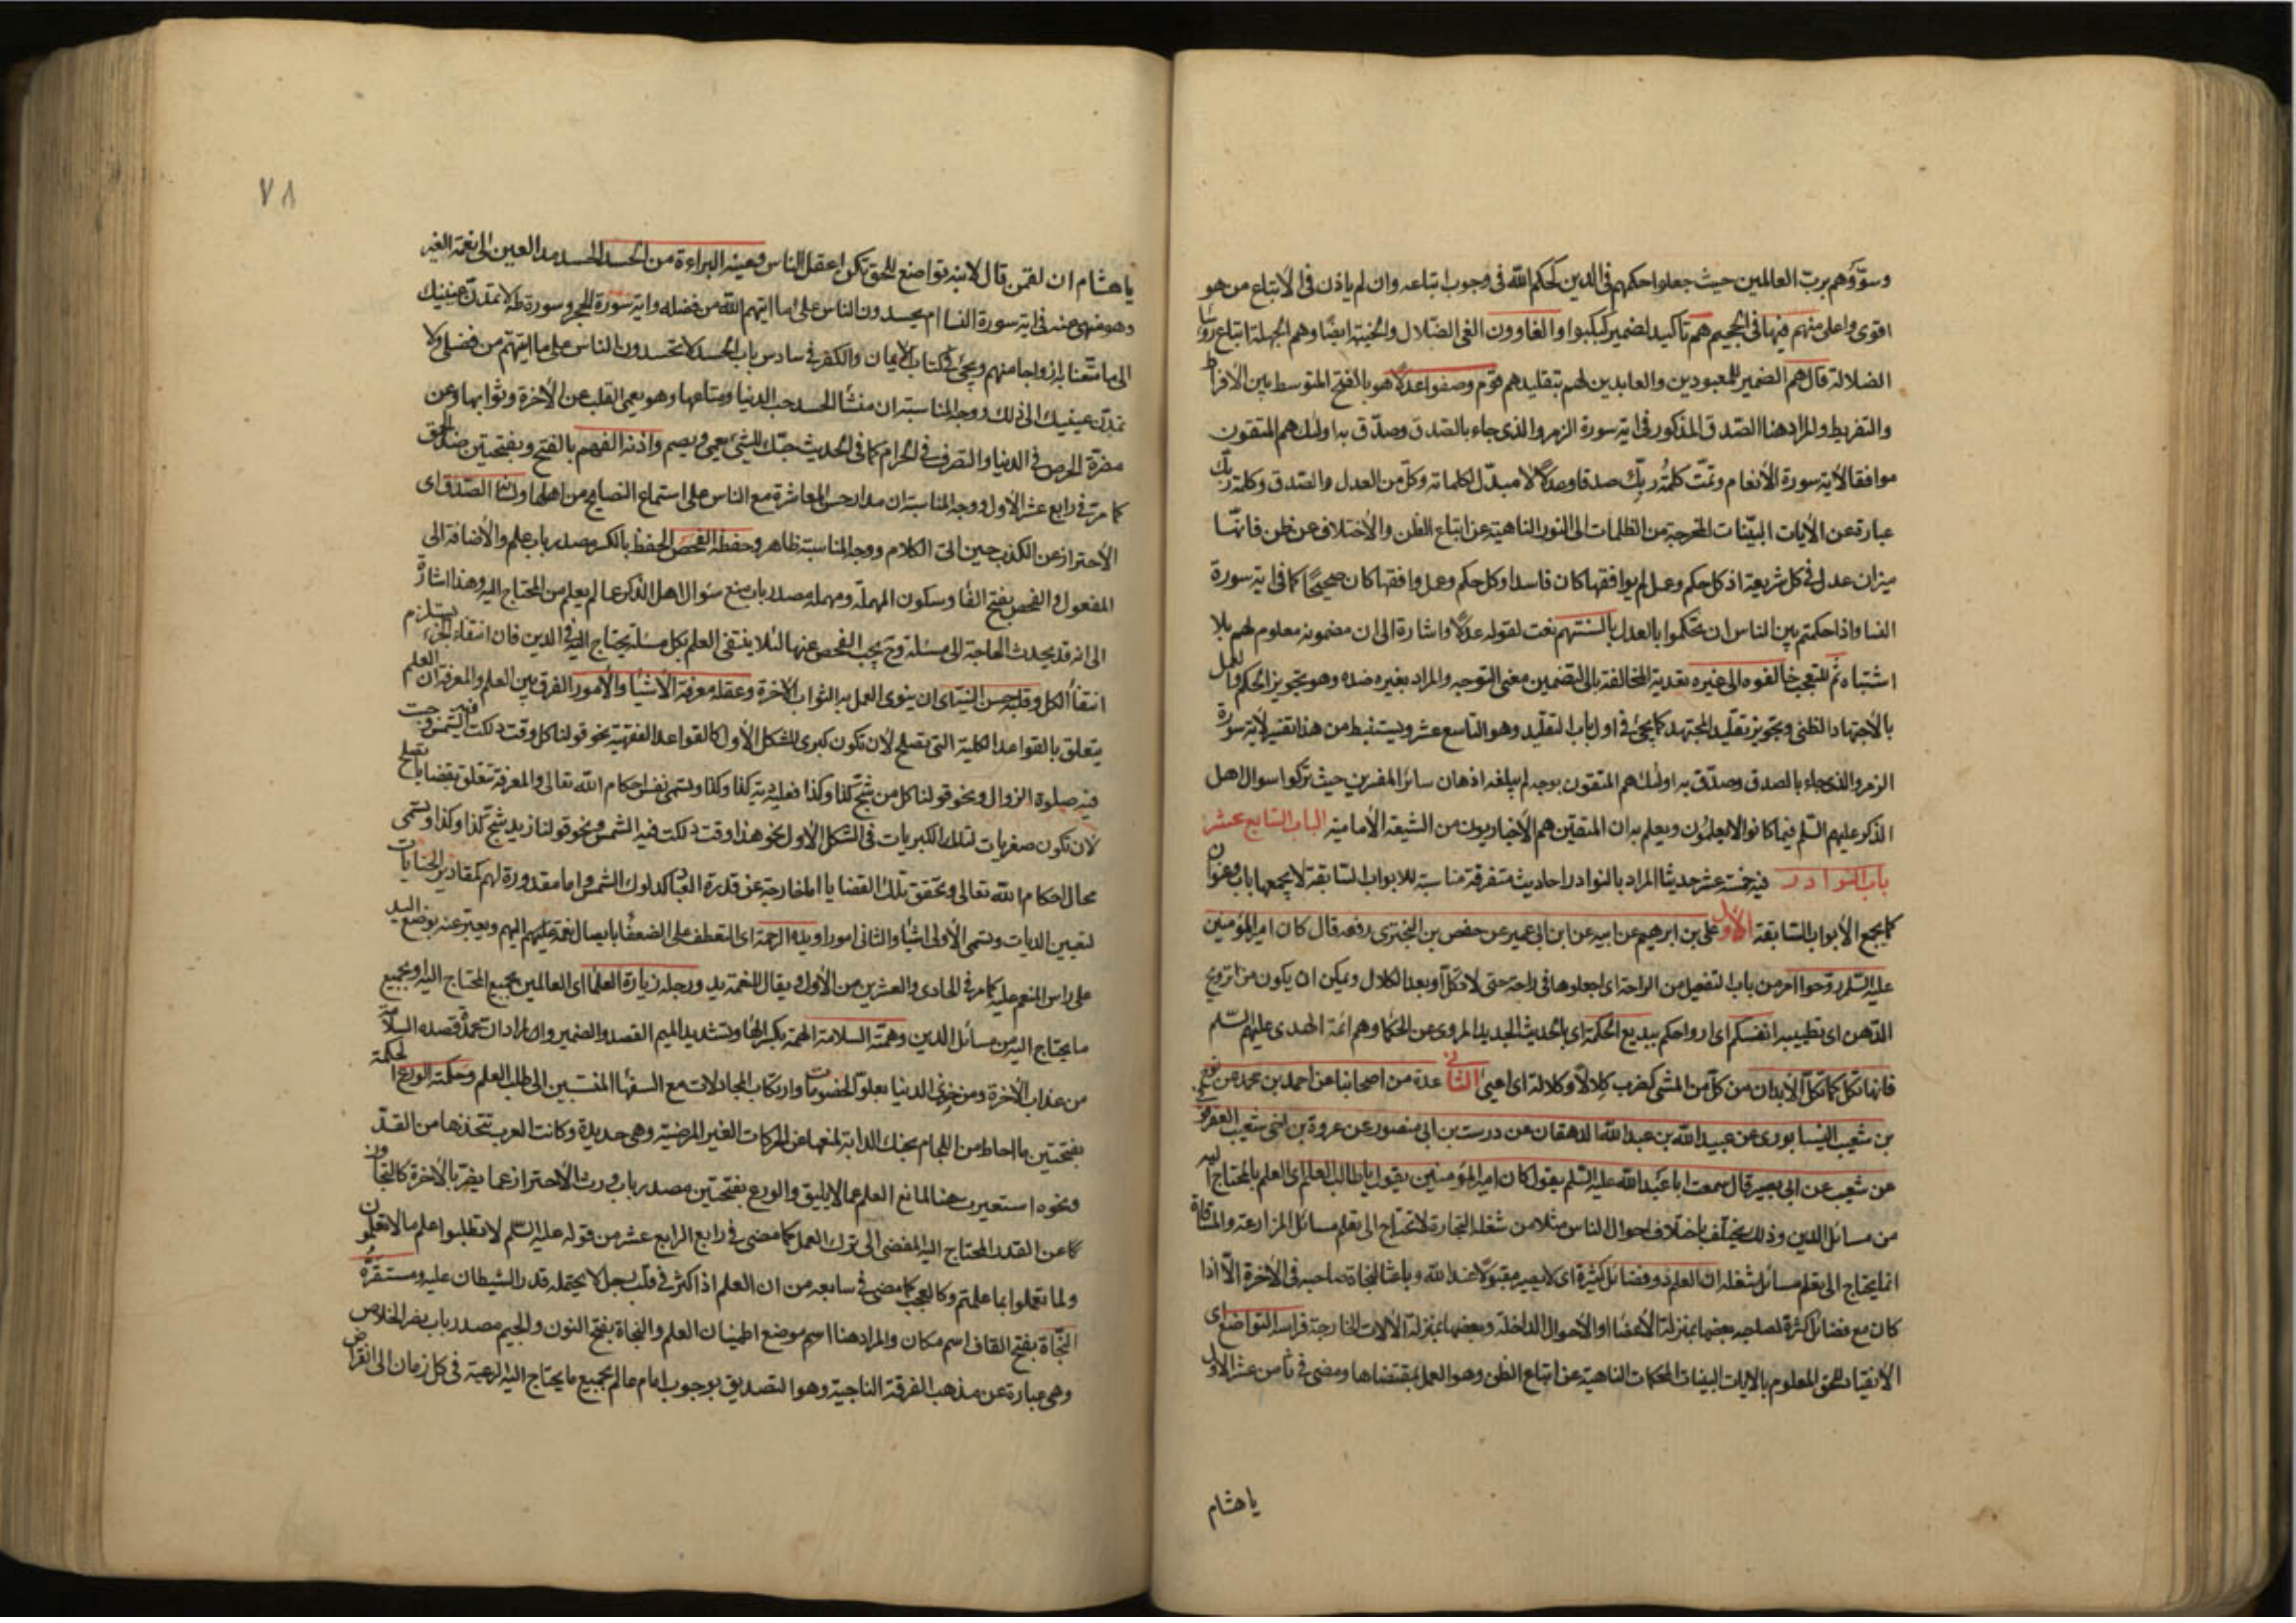 وسوّوهم بربّ العالمين حيث جعلوا حكمهم في الدين كحكم الله في وجوب اتباعه وان لم ياذن في الاتباع من هو
اقوى واعلى منهم فيها في الجحيم هم تاكيد لضمير كبكبوا والغاوون الغى الضلال والخيبة ايضا وهم الجهلة اتباع رؤسا
الضلالة قال هم الضمير للمعبودين والعابدين لهم بتقليدهم قوم وصفوا عدلا هو بالفتح المتوسط بين الافراط
والتفريط والمراد هنا الصدق المذكور في اية سورة الزمر والذي جاء بالصدق وصدّق به اولئك هم المتقون
موافقا لاية سورة الانعام وتمّت كلمة ربّك صدقا وعدلا لا مبدّل لكلماته وكل من العدل والصدق وكلمة ربّك
عبارة عن الايات البيّنات المخرجة من الظلمات الى النور الناهية عن اتباع الظن والاختلاف عن ظن فانها
ميزان عدل في كل شريعة اذ كل حكم وعمل لم يوافقها كان فاسدا وكل حكم وعمل وافقها كان صحيحا كما في اية سورة
النسا واذا حكمتم بين الناس ان تحكموا بالعدل بالسنتهم نعت لقوله عدلا واشارة الى ان مضمونه معلوم لهم بلا
اشتباه ثم للتعجب خالفوه الى غيره تعدية المخالفة بالى لتضمين معنى التوجه والمراد بغيره ضده وهو تجويز الحكم والعمل
بالاجتهاد الظنى وتجويز تقليد المجتهد كما يجئ في اول باب التقليد وهو التاسع عشر ويستنبط من هذا تفسير لاية سورة
الزمر والذي جاء بالصدق وصدّق به اولئك هم المتقون بوجه لم يبلغه اذهان سائر المفسرين حيث تركوا سوال اهل
الذكر عليهم السّلم فيما كانوا لا يعلمون ويعلم به ان المتقين هم الاخباريون من الشيعة الامامية الباب السابع عشر
باب النوادر فيه خمسة عشر حديثا المراد بالنوادر احاديث متفرقة مناسبة للابواب السّابقة لا يجمعها باب وعنوان
كما يجمع الابواب السّابقة الاول علي بن ابرهيم عن ابيه عن ابن ابي عمير عن حفص بن البختري رفعه قال كان امير المؤمنين
عليه السّلم روّحوا امر من باب التفعيل من الراحة اى اجعلوها في راحة حتى لا تكل او بعد الكلال ويمكن ان يكون من ترويح
الدّهن اى تطييبه انفسكم اى ارواحكم ببديع الحكمة اى بالحديث الجديد المروى عن الحكما وهم ائمة الهدى عليهم السّلم
فانها تكلّ كما تكلّ الابدان من كلّ من المشى كضرب كلالا وكلالة اى اعيى الثاني عدة من اصحابنا عن احمد بن محمد عن نوح
بن شعيب النيسابورى عن عبيد الله بن عبد الله الدهقان عن درست بن ابي منصور عن عروة بن اخى شعيب العقرقوفي
عن شعيب عن ابي بصير قال سمعت ابا عبد الله عليه السّلم يقول كان امير المؤمنين يقول يا طالب العلم اى العلم بالمحتاج اليه
من مسائل الدين وذلك يختلف باختلاف احوال الناس مثلا من شغله التجارة لا تحتاج الى تعلم مسائل المزارعة والمساقاة
انما يحتاج الى تعلم مسائل شغله ان العلم ذو فضائل كثيرة اى لا يصير مقبولا عند الله وباعثا لنجاة صاحبه في الاخرة الّا اذا
كان مع فضائل كثيرة لصاحبه بعضها بمنزلة الاعضا او الاحوال الداخلة وبعضها بمنزلة الالات الخارجة فراسه التواضع اى
الانقياد للحق المعلوم بالايات البينات المحكمات الناهية عن اتباع الظن وهو العمل بمقتضاها ومضى في ثامن عشر الاول
يا هشام
٧٨
يا هشام ان لقمن قال لابنه تواضع للحق تكن اعقل الناس وعينه البراءة من الحسد الحسد مد العين الى نعمة الغير
وهو منهى عنه في اية سورة النسا ام يحسدون الناس على ما اتيهم الله من فضله واية سورة الحجر وسورة طه لا تمدّنّ عينيك
الى ما متّعنا به ازواجا منهم ويجئ في كتاب الايمان والكفر في سادس باب الحسد لا تحسدون الناس على ما اتيتهم من فضلى ولا
تمدّن عينيك الى ذلك ووجه المناسبة ان منشأ الحسد حب الدنيا ومتاعها وهو يعمى القلب عن الاخرة وثوابها وعن
مضرّة الحرص في الدنيا والتصرف في الحرام كما في الحديث حبّك للشئ يعمى ويصم واذنه الفهم بالفتح وبفتحتين ضد الحمق
كما مرّ في رابع عشر الاول ووجه المناسبة ان مدار حسن المعاشرة مع الناس على استماع النصايح من اهلها ولسانه الصّدق اى
الاحتراز عن الكذب حين القى الكلام ووجه المناسبة ظاهر وحفظه الفحص الحفظ بالكسر مصدر باب علم والاضافة الى
المفعول والفحص بفتح الفا وسكون المهملة ومهملة مصدر باب منع سؤال اهل الذكر عما لم يعلم من المحتاج اليه وهذا اشارة
الى انه قد يحدث الحاجة الى مسئلة وح يجب الفحص عنها لئلا ينتفى العلم بكل مسئلة يحتاج اليه في الدين فان انتفاء الجزء يستلزم
انتفاء الكل وقلبه حسن النيّة اى ان ينوى العمل به الثواب الاخرة وعقله معرفة الاشيا والامور الفرق بين العلم والمعرفة ان العلم
يتعلق بالقواعد الكلية التي تصلح لان تكون كبرى للشكل الاول كالقواعد الفقهية نحو قولنا كل وقت دلكت فيه الشمس وجبت
فيه صلوة الزوال ونحو قولنا كل من شجّ كذا وكذا فعليه دية كذا وكذا وتسمى نفس احكام الله تعالى والمعرفة تتعلق بقضايا تصلح
لان تكون صغريات لتلك الكبريات في الشكل الاول نحو هذا وقت دلكت فيه الشمس ونحو قولنا زيد شجّ كذا وكذا وتسمى
محال احكام الله تعالى وتحقق تلك القضايا اما خارجة عن قدرة العباد كدلوك الشمس واما مقدورة لهم كمقادير الجنايات
لتعيين الديات وتسمى الاولى اشيا والثانى امورا ويده الرحمة اى التعطف على الضعفا بايصال نعمة عليهم اليهم ويعبر عنه بوضع اليد
على راس المنعم عليه كما مر في الحادى والعشرين من الاول ويقال للنعمة يد ورجله زيارة العلما اى العالمين بجميع المحتاج اليه او بجميع
ما يحتاج اليه من مسائل الدين وهمّته السلامة الهمة بكسر الها وتشديد الميم القصد والضمير والمراد ان عمدة قصده السلامة
من عذاب الاخرة ومن خزى الدنيا بعلو الخصومات وارتكاب المجادلات مع السفها المنتسبين الى طلب العلم وحكمته الورع الحكمة
بفتحتين ما احاط من اللجام بحنك الدابة لمنعها عن الحركات الغير المرضية وهى حديدة وكانت العرب تتخذها من القدّ
ونحوه استعيرت هنا لمانع العلم عما لا يليق والورع بفتحتين مصدر باب ورث الاحتراز عما يضرّ بالاخرة كالتجاوز
كما عن القدر المحتاج اليه المفضى الى ترك العمل كما مضى في رابع الرابع عشر من قوله عليه السّلم لا تطلبوا علم ما لا تعلمون
ولما تعملوا بما علمتم وكالعجب كما مضى في سابعه من ان العلم اذا كثر في قلب رجل لا يحتمله قدر الشيطان عليه ومستقرّه
النّجاة بفتح القاف اسم مكان والمراد هنا اسم موضع اطمينان العلم والنجاة بفتح النون والجيم مصدر باب نصر الخلاص
وهى عبارة عن مذهب الفرقة الناجية وهو التصديق بوجوب امام عالم بجميع ما يحتاج اليه الرعية في كل زمان الى انقراض